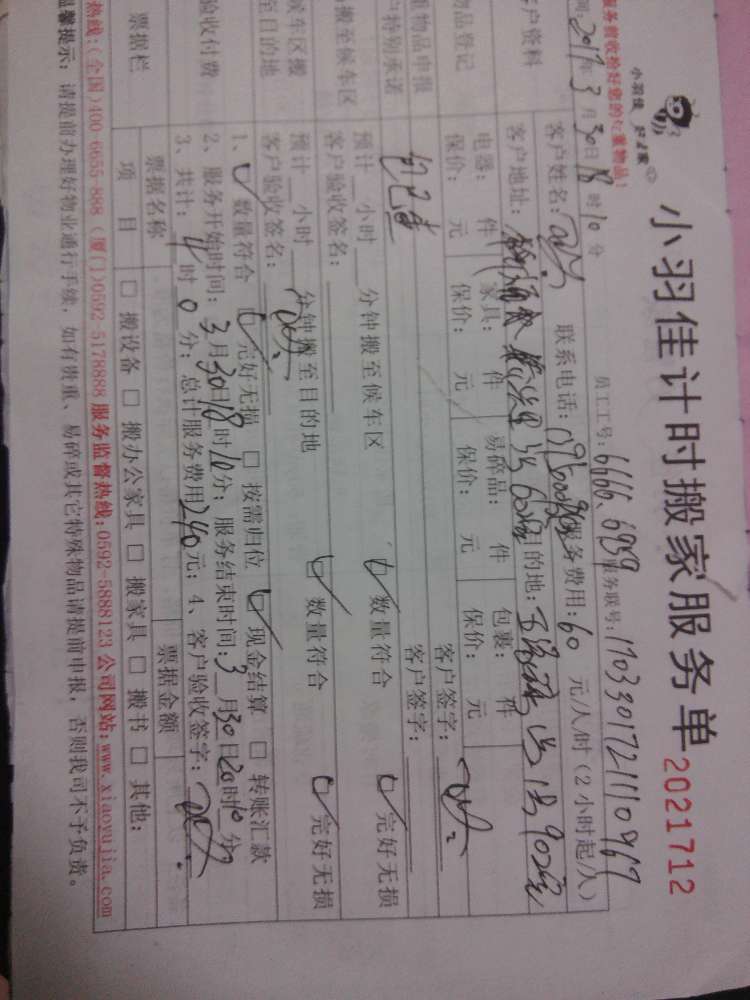 小羽佳计时搬家服务单
2021712
小羽佳
服务验收检好您的贵重物品!
2017年3月30日18时10分
员工工号:6666、6959
服务联号:17033017211110969
客户资料
客户姓名:
联系电话:
服务费用:60元/人/时(2小时起/人)
客户地址:
目的地:
物品登记
电器: 件
家具: 件
易碎品: 件
包裹: 件
保价: 元
保价: 元
保价: 元
保价: 元
重物品申报
客户特别承诺
客户签字:
客户签字:
搬至候车区
预计 小时 分钟搬至候车区
数量符合
完好无损
客户验收签名:
候车区搬至目的地
预计 小时 分钟搬至目的地
数量符合
完好无损
客户验收签名:
验收付费
1、数量符合 完好无损 按需归位 现金结算 转账汇款
2、服务开始时间:3月30日18时10分;服务结束时间:3月30日20时10分
3、共计:4时0分;总计服务费用240元;4、客户验收签字:
票据栏
票据名称
票据金额
项目
搬设备 搬办公家具 搬家具 搬书 其他:
热线:(全国)400 6655-888 (厦门)0592-5178888 服务监督热线:0592-5888123 公司网站:www.xiaoyujia.com
温馨提示:请提前办理好物业通行手续,如有贵重、易碎或其它特殊物品请提前申报,否则我司不予负责。